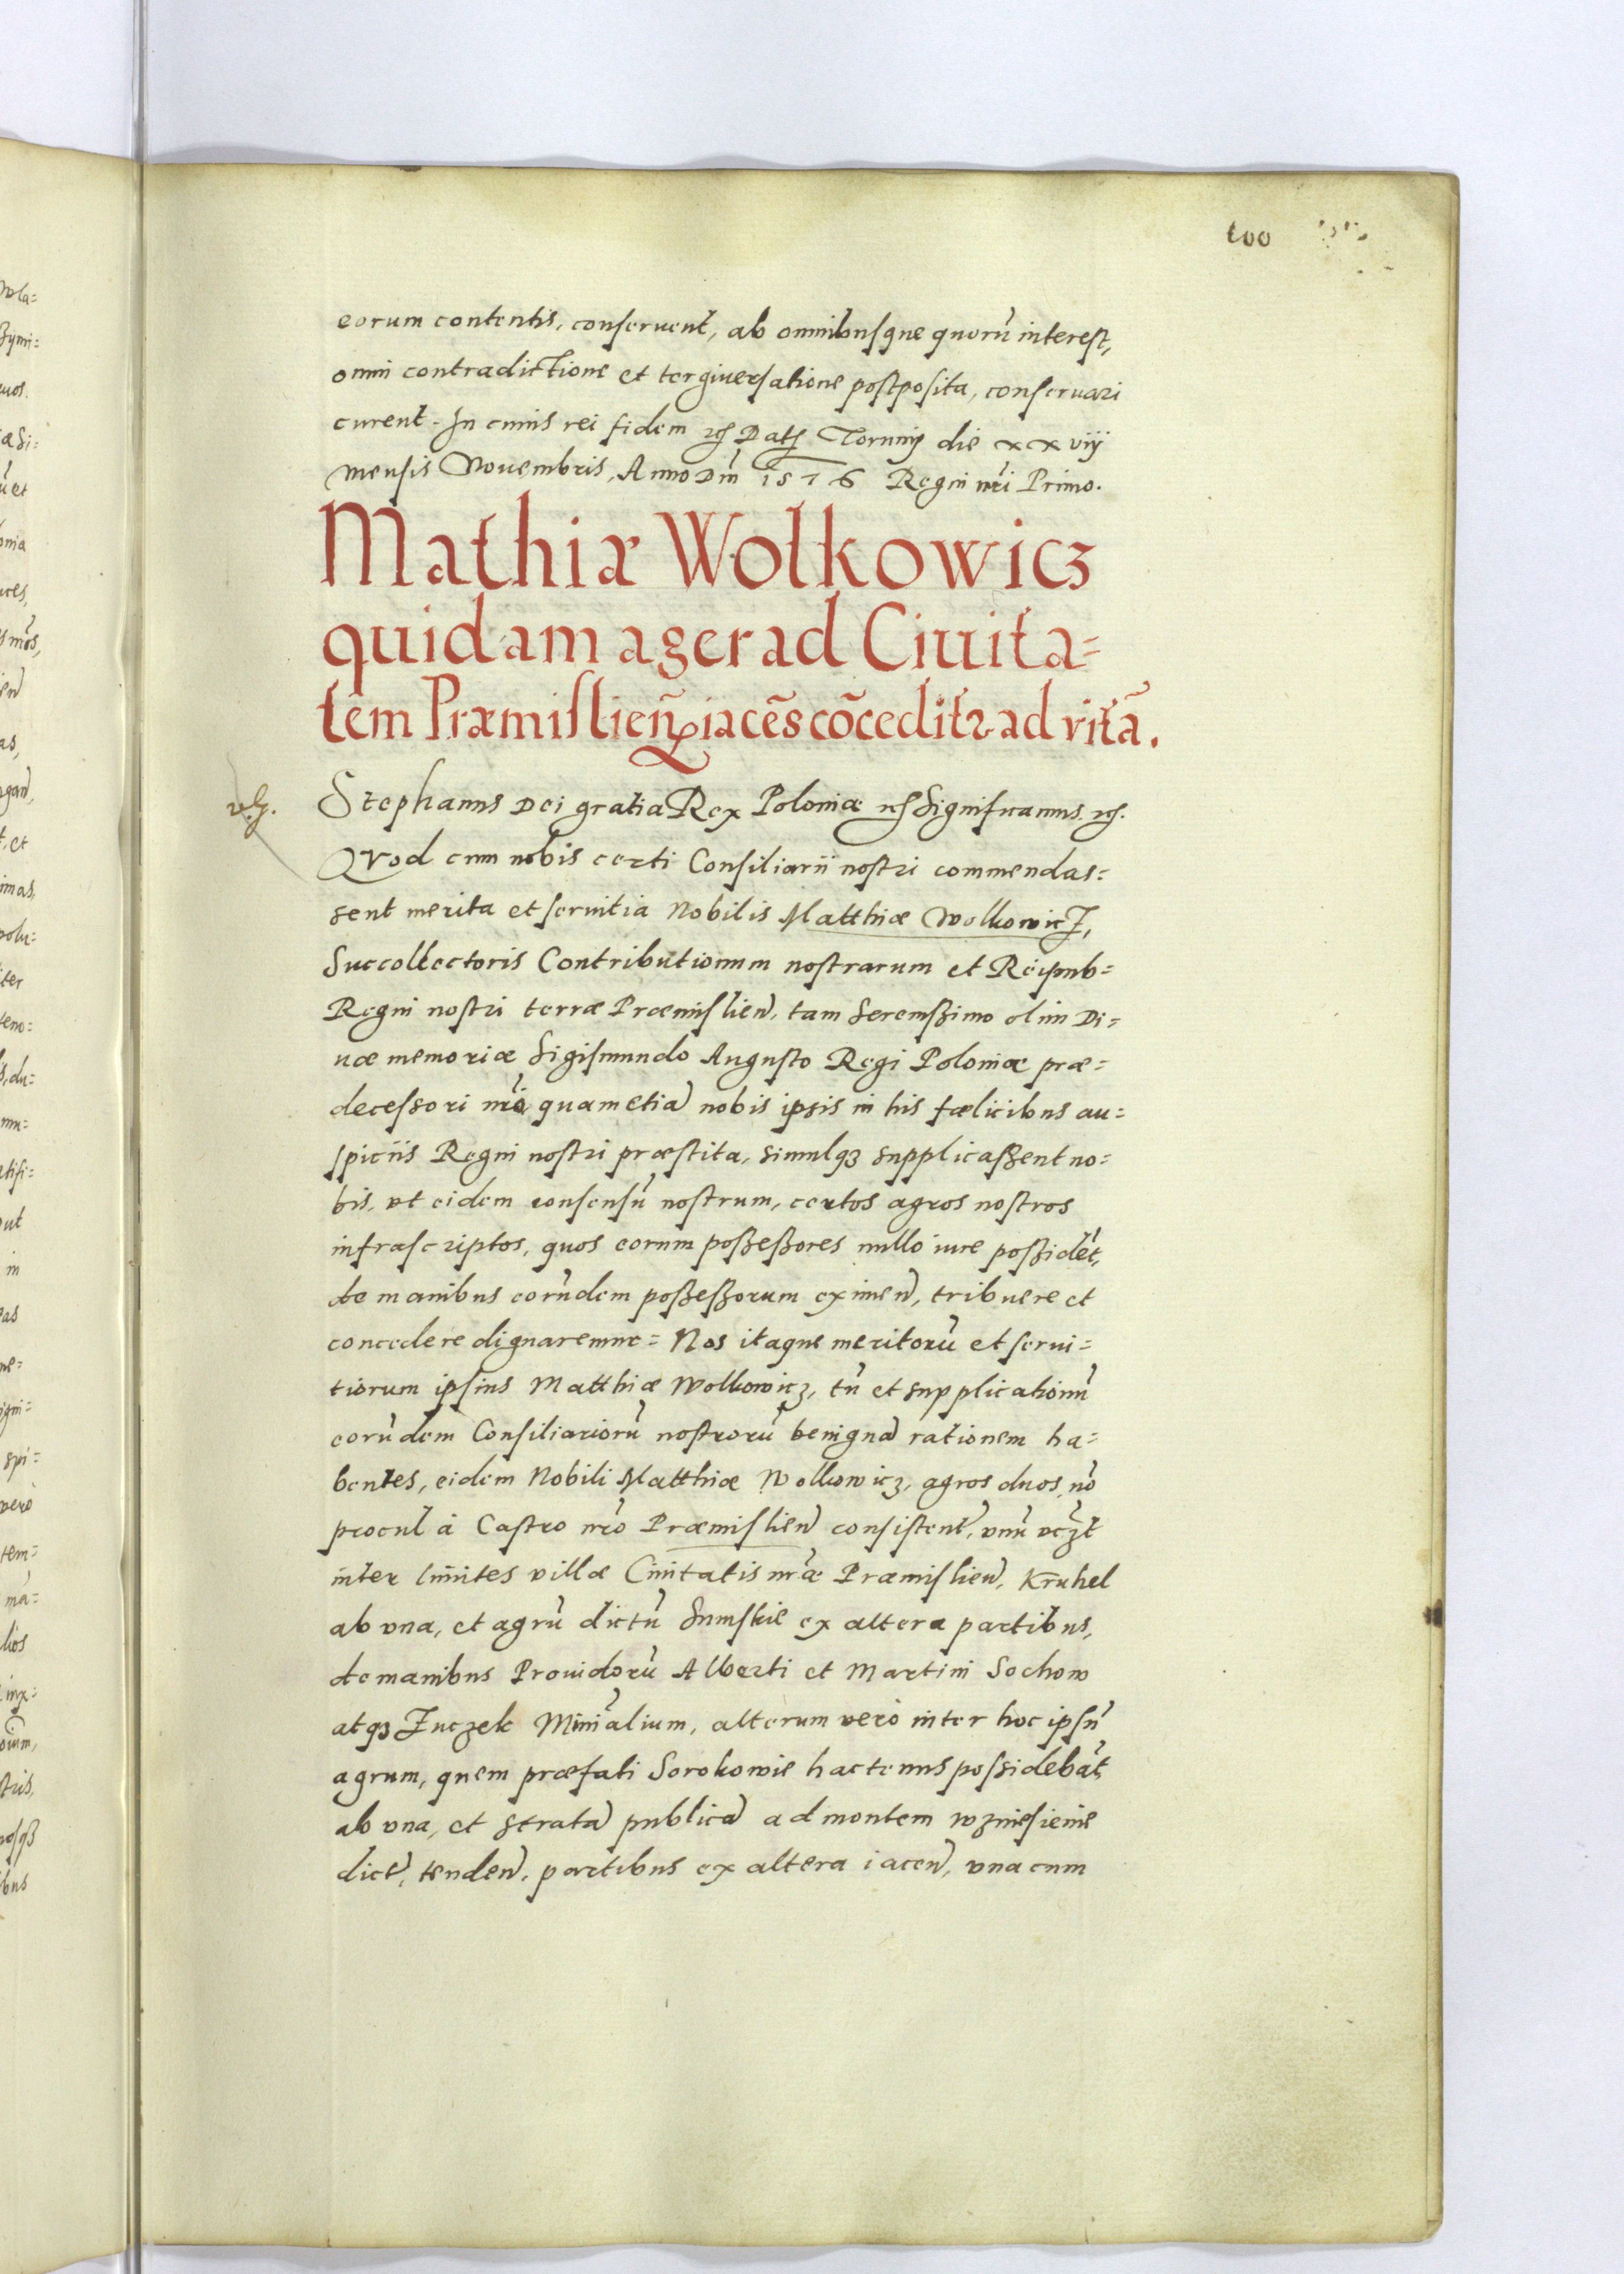 100
eorum contentis, conseruent, ab omnibusque quorū interest,
omni contradictione et tergiuersatione postposita, conseruari
curent. In cuius rei fidem etc Datum Toruniij die xxviij
mensis Nouembris, Anno Dni 1576 Regni nri Primo.
Mathiæ Wolkowicz
quidam ager ad Ciuita=
tem Præmislieñ iacēs cōceditr ad vitā.
Stephanus Dei gratia Rex Poloniæ etc Significamus etc.
Quod cum nobis certi Consiliarii nostri commendas=
sent merita et seruitia Nobilis Matthiæ Wolkowicz,
Succollectoris Contributionum nostrarum et Reipub=
Regni nostri terræ Præmislien̄, tam Serenißimo olim Di=
uæ memoriæ Sigismundo Augusto Regi Poloniæ præ=
decessori nrō quam etiā nobis ipsis in his fælicibus au=
spiciis Regni nostri præstita, simulqȝ supplicaßent no=
bis, vt eidem consensū nostrum, certos agros nostros
infrascriptos, quos eorum poßeßores nullo iure poßidēt,
de manibus eorūdem poßeßorum eximen̄, tribuere et
concedere dignaremur= Nos itaque meritorū et serui=
tiorum ipsius Matthiæ Wolkowicz, tū et supplicationū
eorūdem Consiliariorū nostrorū benignā rationem ha=
bentes, eidem Nobili Matthiæ Wolkowicz, agros duos nō
procul à Castro nrō Præmislien̄ consistent̄, vnū vcȝt
inter limites villæ Ciuitatis nrǣ Præmislien̄, Kruhel
ab vna, et agrū dictū Sumskie ex altera partibus,
de manibus Prouidorū Alberti et Martini Sochow
atqȝ Zuczek Mini᷑alium, alterum verò inter hoc ipsū
agrum, quem præfati Sorokowie hactenus poßidebāt,
ab vna, et stratā publicā ad montem wzniesienie
dict̄, tenden̄, partibus ex altera iacen̄, vna cum